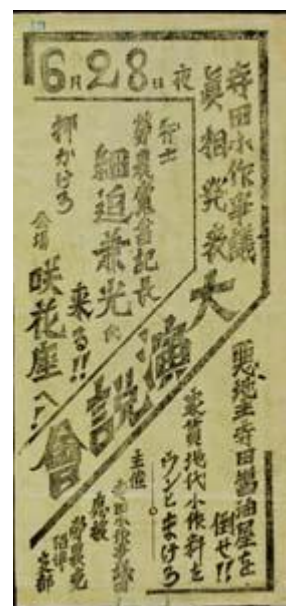 6月28日夜
寺田小作爭議
眞相発表
大演説會
弁士
勞農党書記長
細迫兼光氏
来る!!
押かけろ
会場 咲花座へ!
悪地主寺田醤油屋を
倒せ!!
家賃地代小作料を
ウンとまけろ
主催
寺田小作爭議団
應援
勞農党
支部